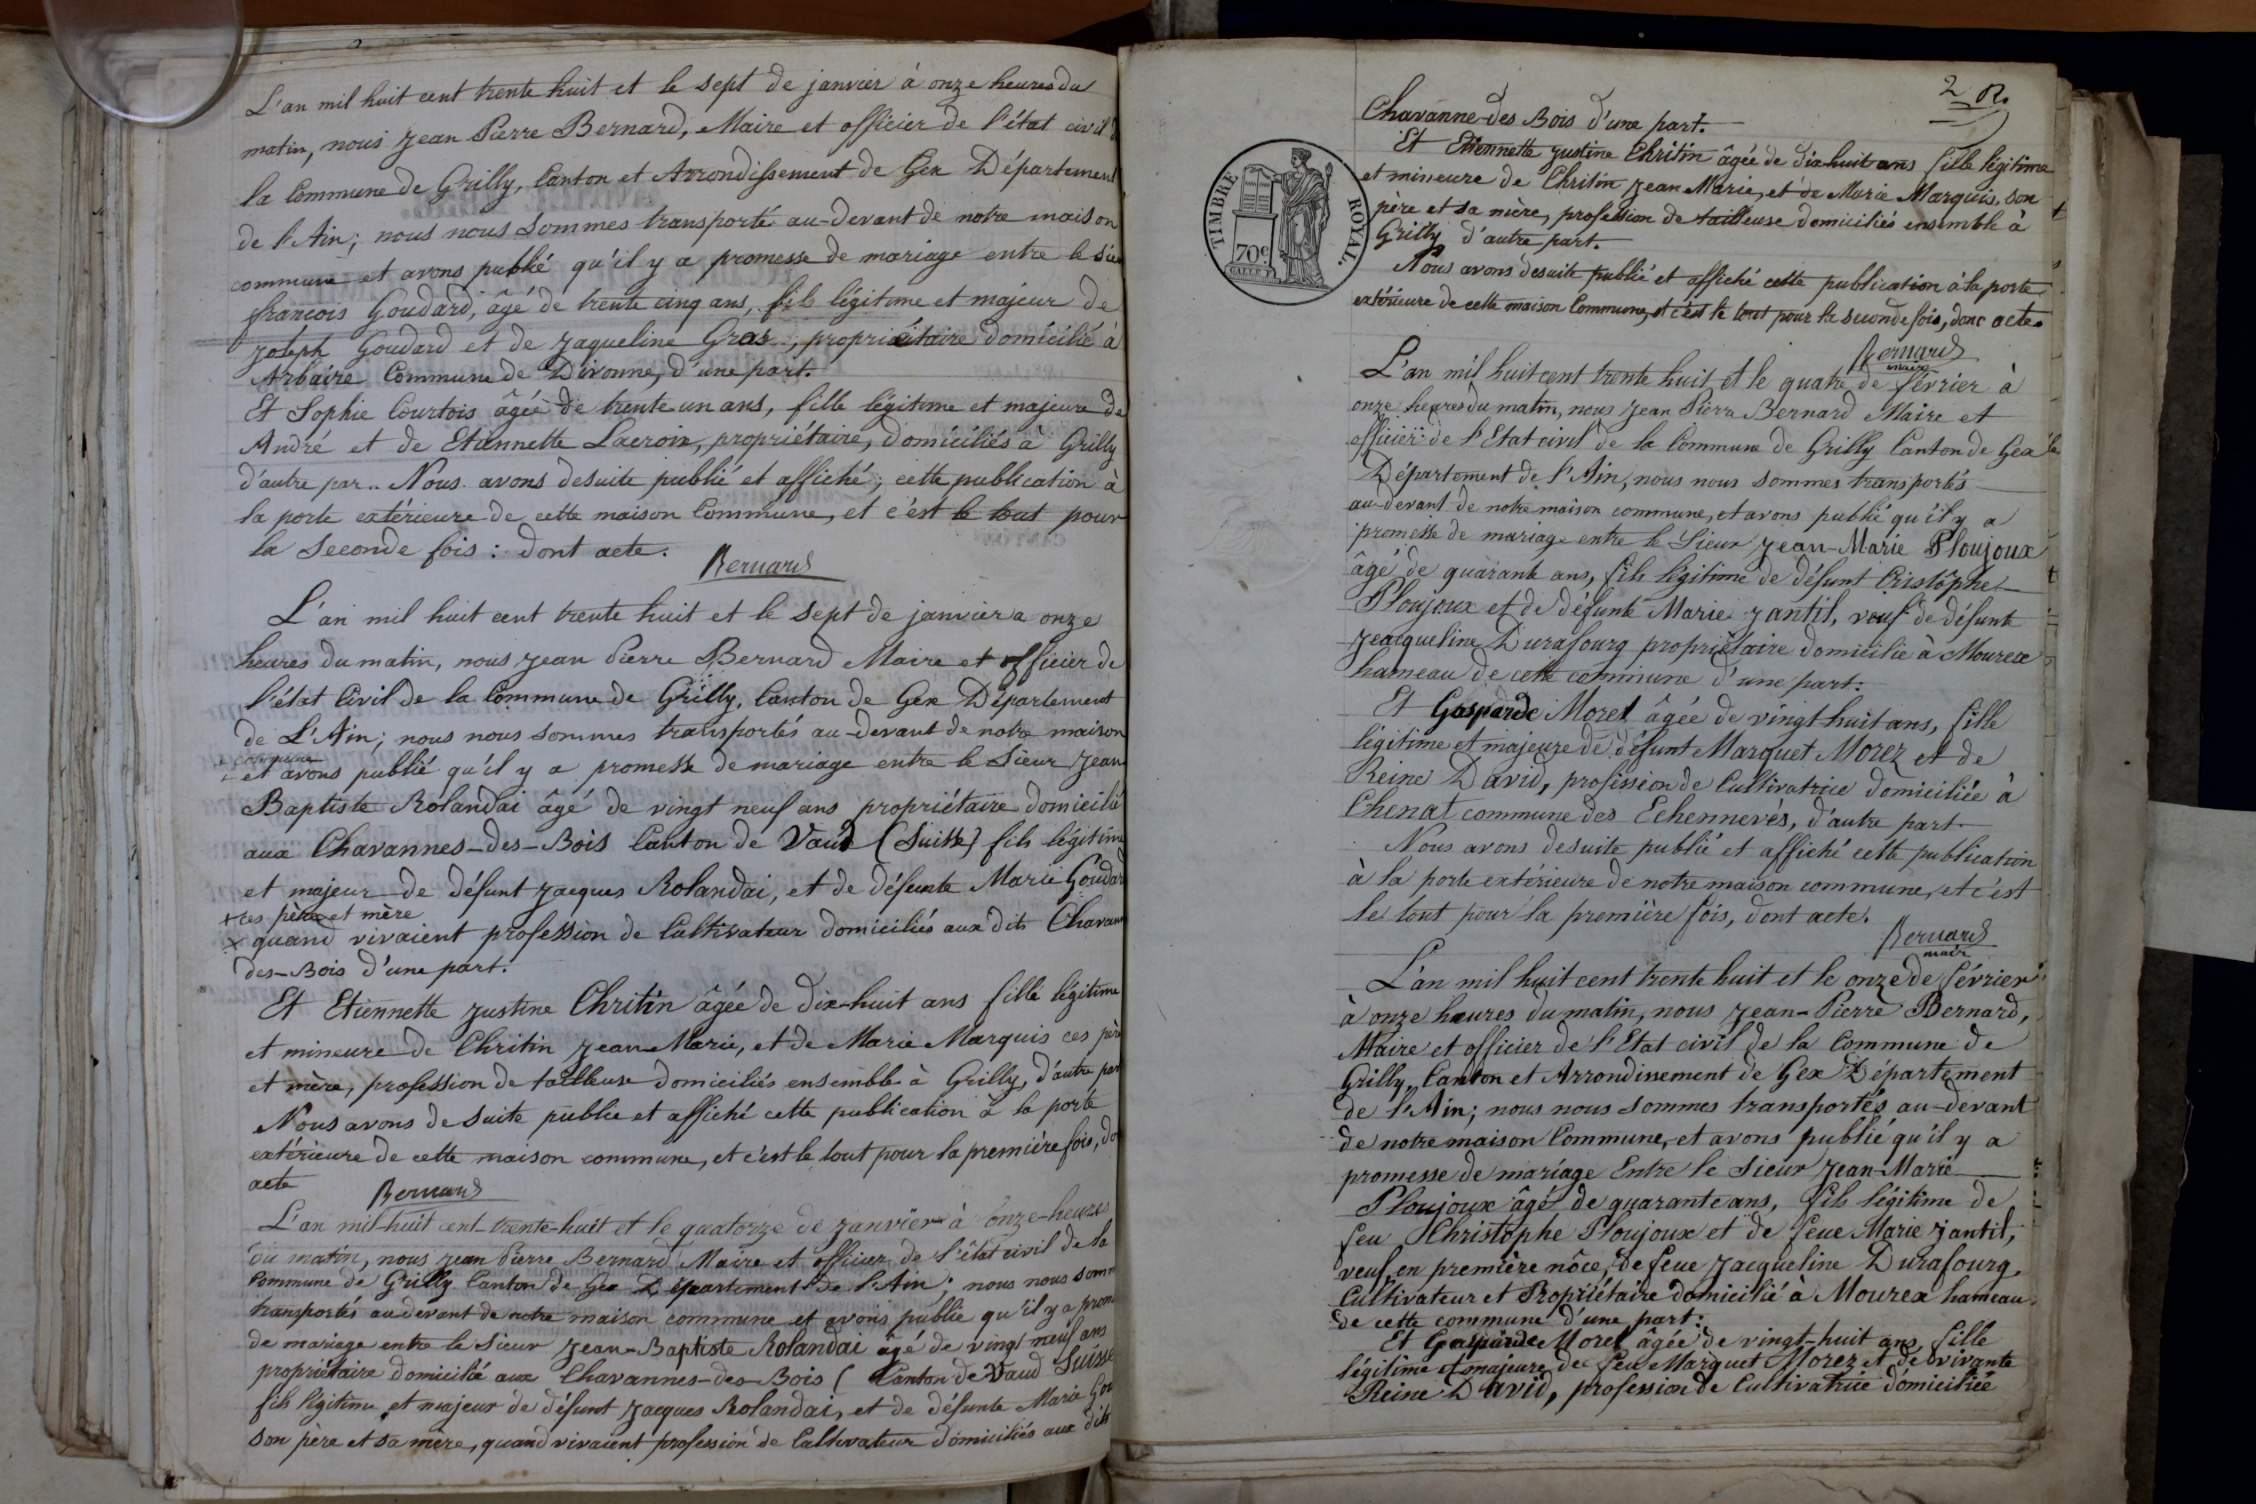 L'an mil huit cent trente huit et le sept de janvier à onze heures du
matin, nous Jean Pierre Bernard, Maire et officier de l'état civil
la Commune de Grilly, Canton et Arrondissement de Gex Département
de l'Ain; nous nous sommes transporté au-devant de notre maison
commune et avons publié qu'il y a promesse de mariage entre le
françois Goudard, âgé de trente cinq ans, fils légitime et majeur de
Joseph Goudard et de Jaqueline Gras, propriétaire domicilié à
Arbaire Commune de Divonne, d'une part.
Et Sophie Courtois âgée de trente un ans, fille légitime et majeure de
André et de Etiennette Lacroix, propriétaire, domiciliés à Grilly
d'autre par.. Nous avons desuite publié et affiché, cette publication à
la porte extérieure de cette maison Commune, et c'est le tout pour
la seconde fois: dont acte.
Bernard
L'an mil huit cent trente huit et le sept de janvier a onze
heures du matin, nous Jean Pierre Bernard Maire et officier de
l'état Civil de la Commune de Grilly, Canton de Gex Département
de L'Ain; nous nous sommes transportés au-devant de notre maison
+ commune
+ et avons publié qu'il y a promesse de mariage entre le Sieur Jean
Baptiste Rolandai âgé de vingt neuf ans propriétaire domicilié
aux Chavannes-des-Bois Canton de Vaud (Suisse) fils légitime
et majeur de défunt Jacques Rolandai, et de défunte Marie Goudard
+ ces père et mère
x quand vivaient profession de Cultivateur domiciliés aux dits
des-Bois d'une part.
Et Etiennette Justine Chritin âgée de dix-huit ans fille légitime
et mineure de Chritin Jean Marie, et de Marie Marquis ces père
et mère, profession de tailleuse domiciliés ensemble à Grilly, d'autre
Nous avons de suite publie et affiché cette publication à la porte
extérieure de cette maison commune, et c'est le tout pour la première fois,
acte
Bernard
L'an mil-huit cent-trente-huit et le quatorze de janvier à onze-heures
du matin, nous Jean Pierre Bernard Maire et officier de l'état civil de la
Commune de Grilly Canton de Gex Département de l'Ain; nous nous
transportés au devant de notre maison commune et avons publie qu'il y a
de mariage entre le sieur Jean-Baptiste Rolandai âgé de vingt neuf ans
propriétaire domicilié aux Chavannes-des-Bois (Canton de Vaud Suisse
fils légitime et majeur de défunt Jacques Rolandai, et de défunte Marie
son père et sa mère, quand vivaient profession de Cultivateur domiciliés aux dits
2
Chavanne-des Bois d'une part.
Et Etiennette Justine Chritin âgée de dix huit ans fille légitime
et mineure de Chritin Jean Marie, et de Marie Marquis, son
père et sa mère, profession de tailleuse domiciliés ensemble à
Grilly d'autre part.
TIMBRE ROYAL.
70c
Nous avons desuite publié et affiché cette publication à la porte
extérieure de cette maison Commune, et c'est le tout pour la seconde fois, donc acte.
Bernard
maire
L'an mil huit cent trente huit et le quatre de février à
onze heures du matin, nous Jean Pierre Bernard Maire et
officier de l'Etat civil de la Commune de Grilly Canton de Gex
Département de l'Ain, nous nous sommes transportés
au-devant de notre maison commune, et avons publié qu'il y a
promesse de mariage entre le Sieur Jean-Marie Ploujoux
âgé de quarante ans, fils légitime de défunt Cristôphe
Ploujoux et de défunte Marie Jantil, veuf de défunte
Jeacqueline Durafourg propriétaire domicilié à Mourex
hameau de cette commune d'une part:
Et Gasparde Moret âgée de vingt huit ans, fille
légitime et majeure de défunt Marquet Morez et de
Reine David, profission de Cultivatrice domiciliée à
Chenat commune des Echennevés, d'autre part.
Nous avons desuite publié et affiché cette publication
à la porte extérieure de notre maison commune, et c'est
le tout pour la première fois, dont acte.
Bernard
L'an mil huit cent trente huit et le onze de février
à onze heures du matin, nous Jean-Pierre Bernard,
Maire et officier de l'Etat civil de la Commune de
Grilly, Canton et Arrondissement de Gex Département
de l'Ain; nous nous sommes transportés au-devant
de notre maison Commune, et avons publié qu'il y a
promesse de mariage Entre le Sieur Jean-Marie
Ploujoux âgé de quarante ans, fils légitime de
feu Christophe Ploujoux et de feue Marie Jantil,
veuf en première nôce, de feue Jacqueline Durafourg,
Cultivateur et Propriétaire domicilié à Mourex hameau
de cette commune d'une part:
Et Gasparde Moret âgée de vingt-huit ans, fille
légitime et majeure de feu Marquet Morez et de vivante
Reine David, profession de Cultivatrice domiciliée